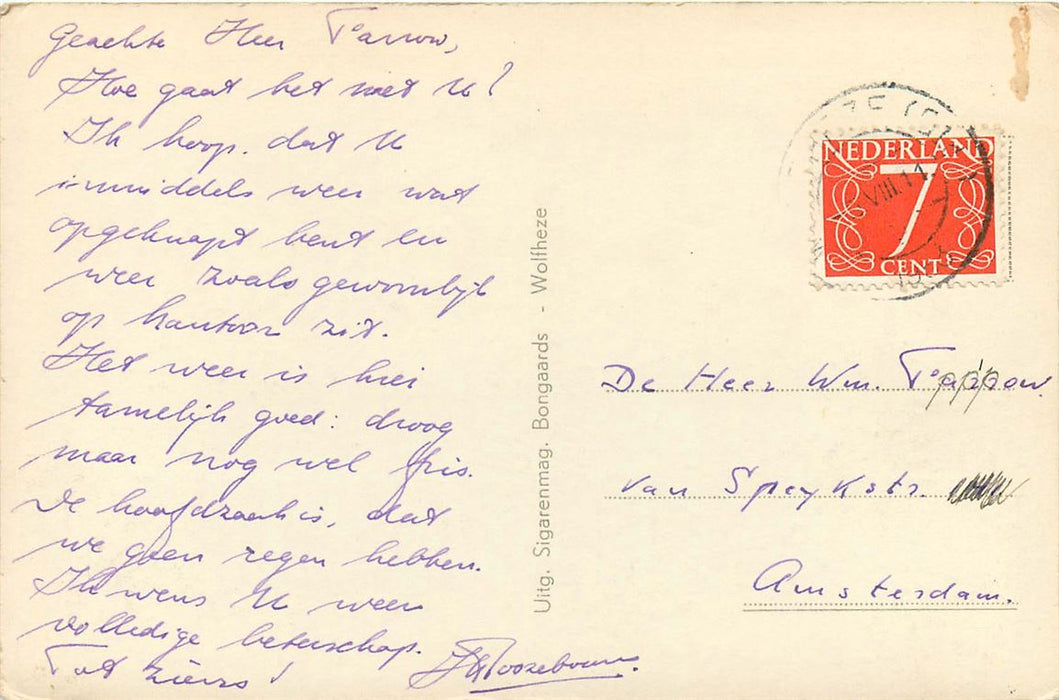 Geachte Heer Parrow,
Hoe gaat het met U?
Ik hoop. dat U
inmiddels weer wat
opgeknapt bent en
weer zoals gewoonlijk
op kantoor zit.
Het weer is hier
tamelijk goed: droog
maar nog wel fris.
De hoofdzaak is, dat
we geen regen hebben.
Ik wens U weer
volledige beterschap.
Tot ziens!
Uitg. Sigarenmag. Bongaards - Wolfheze
NEDERLAND
7
CENT
VIII.14.
De Heer Wm.
van Speykstr.
Amsterdam.